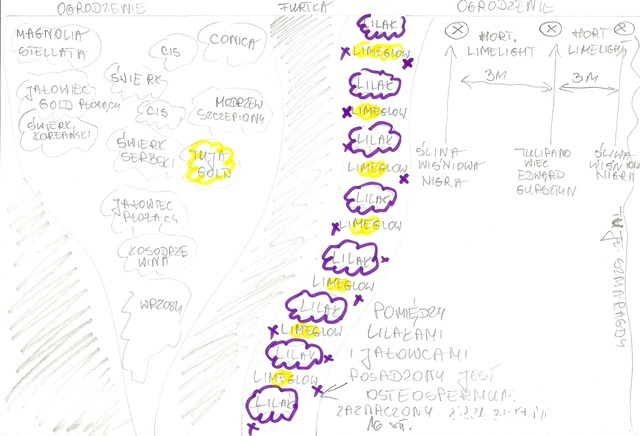 OGRODZENIE
FURTKA
OGRODZENIE
MAGNOLIA
STELLATA
CIS
CONICA
JAŁOWIEC
GOLD PŁOŻĄCY
ŚWIERK
KOREAŃSKI
ŚWIERK
CIS
MODRZEW
SZCZEPIONY
ŚWIERK
SERBSKI
TUJA
GOLD
JAŁOWIEC
PŁOŻĄCY
KOSODRZE
WINA
WRZOSY
LILAK
LIMEGLOW
LILAK
LIMEGLOW
LILAK
LIMEGLOW
LILAK
LIMEGLOW
LILAK
LIMEGLOW
LILAK
LIMEGLOW
LILAK
LIMEGLOW
LILAK
HORT.
LIMELIGHT
HORT
LIMELIGHT
3M
3M
ŚLIWA
WIŚNIOWA
NIGRA
TULIPANO
WIEC
EDWARD
GURSZTYN
ŚLIWA
WIŚNIOWA
NIGRA
TUJE SZMARAGDY
POMIĘDZY
LILAKAMI
I JAŁOWCAMI
POSADZONY JEST
OSTEOSPERMUM
ZAZNACZONY